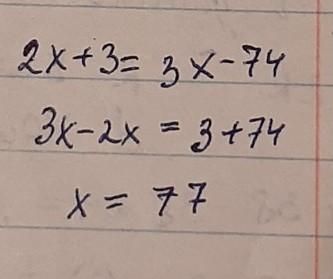 2x+3= 3x-74
3x-2x = 3+74
x = 77